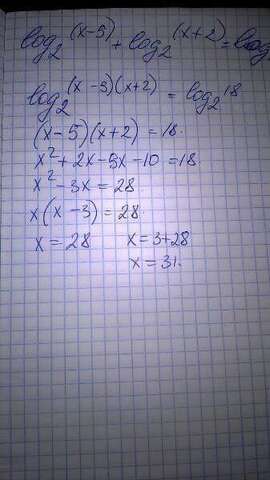 log₂(x-5) + log₂(x+2) = log
log₂(x-5)(x+2) = log₂18
(x-5)(x+2) = 18.
x² + 2x - 5x - 10 = 18
x² - 3x = 28.
x(x-3) = 28
x = 28 x = 3+28
x = 31.